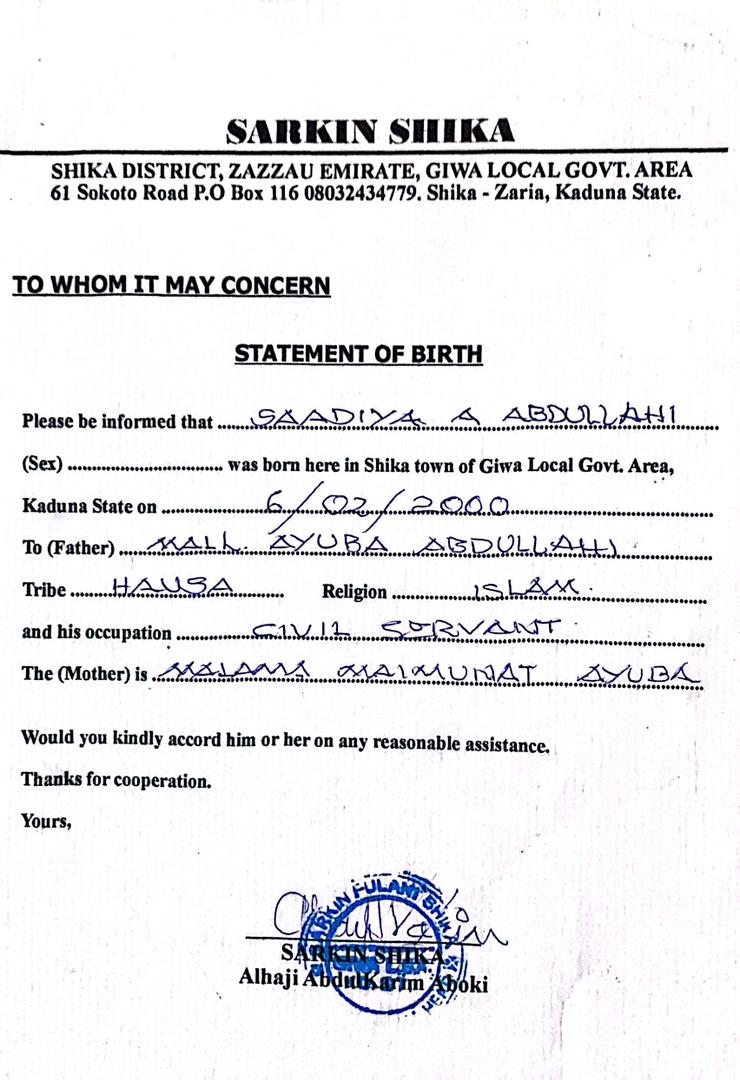 SARKIN SHIKA
SHIKA DISTRICT, ZAZZAU EMIRATE, GIWA LOCAL GOVT. AREA
61 Sokoto Road P.O Box 116 08032434779. Shika - Zaria, Kaduna State.
TO WHOM IT MAY CONCERN
STATEMENT OF BIRTH
Please be informed that SAADIYA A ABDULLAHI
(Sex) ........................................ was born here in Shika town of Giwa Local Govt. Area,
Kaduna State on 6/02/2000
To (Father) MALL. AYUBA ABDULLAHI
Tribe HAUSA Religion ISLAM.
and his occupation CIVIL SERVANT
The (Mother) is MALAMA MAIMUNAT AYUBA
Would you kindly accord him or her on any reasonable assistance.
Thanks for cooperation.
Yours,
SARKIN FULANI SHIKA
SARKIN SHIKA
Alhaji AbdulKarim Aboki